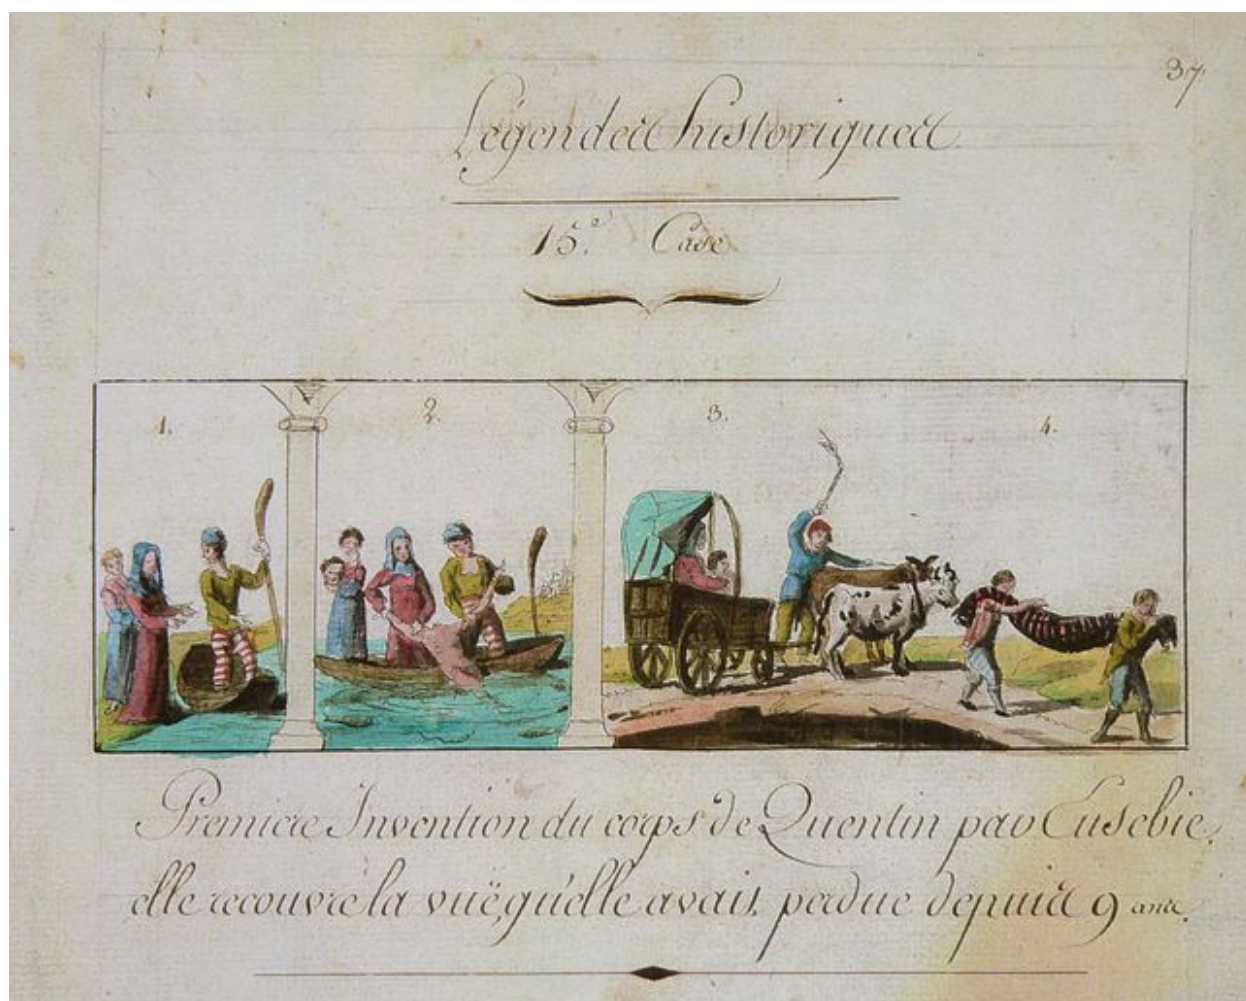 37.
Légendes historiques.
15.e Case
1.
2.
3.
4.
Premiere Invention du corps de Quentin par Eusebie,
elle recouvre la vuë qu'elle avait perdue depuis 9 ans.